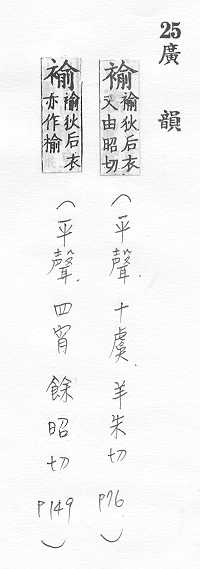 25廣 韻
褕 褕狄后衣 又由昭切 (平聲. 十虞. 羊朱切 P76)
褕 褕狄后衣 亦作揄 (平聲. 四宵 餘昭切 P149)